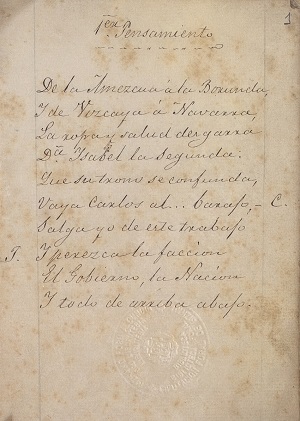 1
1er Pensamiento
De la Amezcua á la Borunda,
Y de Vizcaya á Navarra,
La ropa y salud desgarra
Dª. Isabel la Segunda.
Que su trono se confunda,
Vaya Carlos al... Carajo, – C.
Salga yo de este trabajo
T. Y perezca la facción
El Gobierno, la Nación
Y todo de arriba abajo.